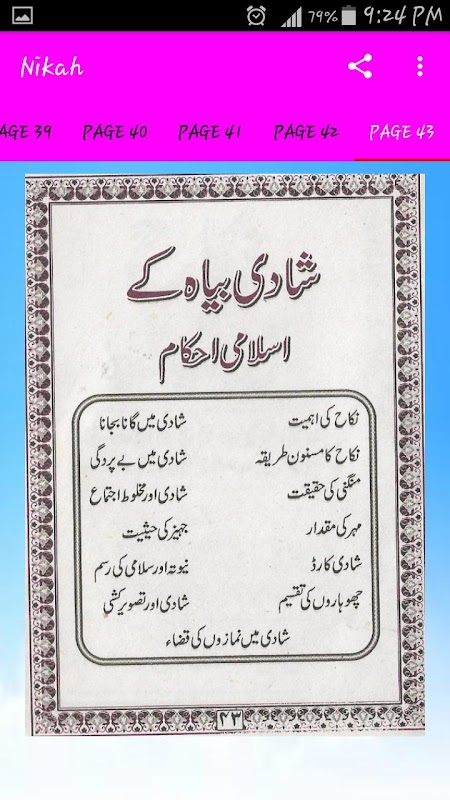 79% 9:24 PM
Nikah
AGE 39 PAGE 40 PAGE 41 PAGE 42 PAGE 43
شادی بیاہ کے
اسلامی احکام
نکاح کی اہمیت شادی میں گانا بجانا
نکاح کا مسنون طریقہ شادی میں بے پردگی
منگنی کی حقیقت شادی اور مخلوط اجتماع
مہر کی مقدار جہیز کی حیثیت
شادی کارڈ نیوتہ اور سلامی کی رسم
چھوہاروں کی تقسیم شادی اور تصویر کشی
شادی میں نمازوں کی قضاء
۴۳